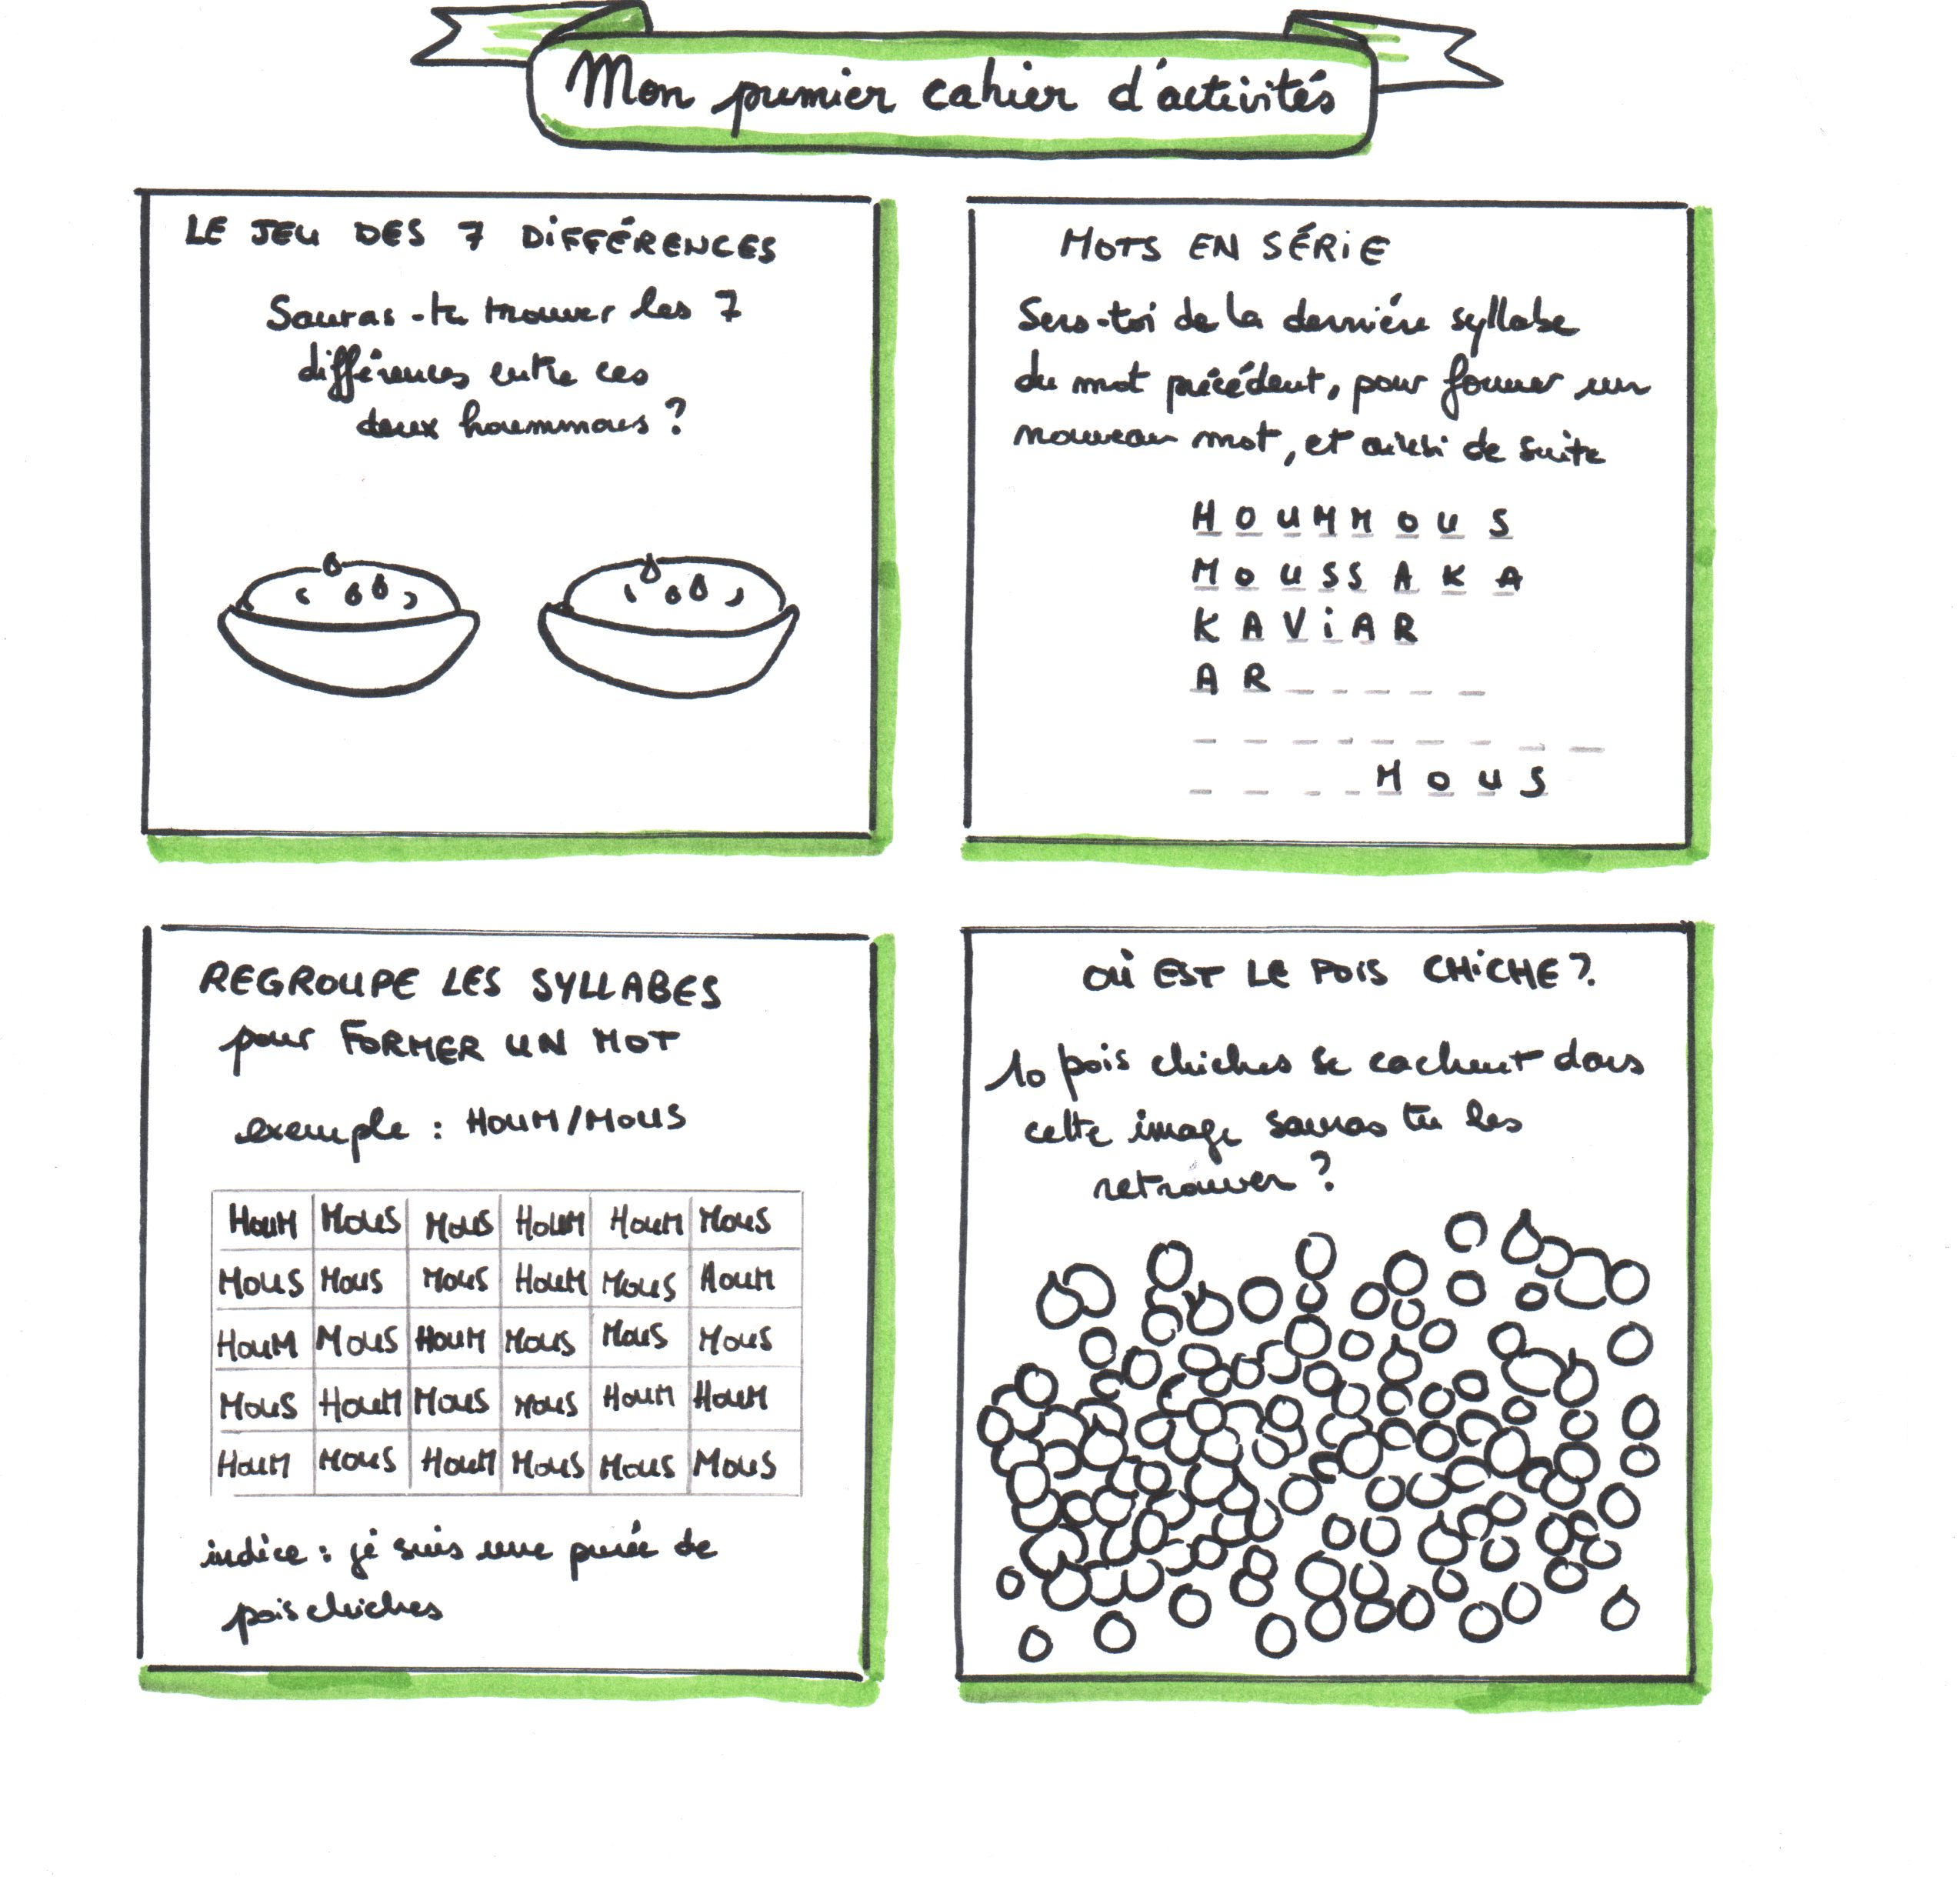 Mon premier cahier d'activités
LE JEU DES 7 DIFFÉRENCES
Sauras-tu trouver les 7
différences entre ces
deux hoummous ?
MOTS EN SÉRIE
Sers-toi de la dernière syllabe
du mot précédent, pour former un
nouveau mot, et ainsi de suite
HOUMMOUS
MOUSSAKA
KAVIAR
AR_____
_________
____MOUS
REGROUPE LES SYLLABES
pour FORMER UN MOT
exemple : HOUM/MOUS
HOUM MOUS MOUS HOUM HOUM MOUS
MOUS MOUS MOUS HOUM MOUS HOUM
HOUM MOUS HOUM MOUS MOUS MOUS
MOUS HOUM MOUS MOUS HOUM HOUM
HOUM MOUS HOUM MOUS MOUS MOUS
indice : je suis une purée de
pois chiches
OÙ EST LE POIS CHICHE ?
10 pois chiches se cachent dans
cette image sauras tu les
retrouver ?